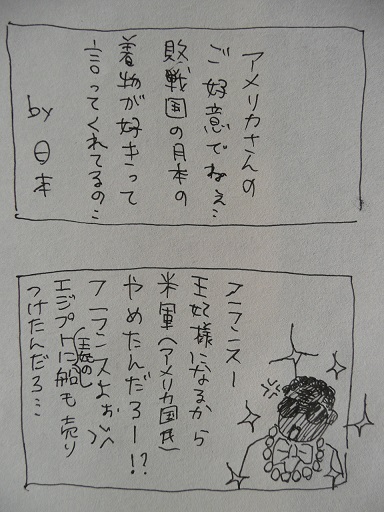 アメリカさんの
ご好意でねぇ…
敗戦国の日本の
着物が好きって
言ってくれてるの…
by 日本
フランスー
王妃様になるから
米軍(アメリカ国民)
やめたんだろー!?
フランスよぉ
エジプトに船も売り
つけたんだろ…